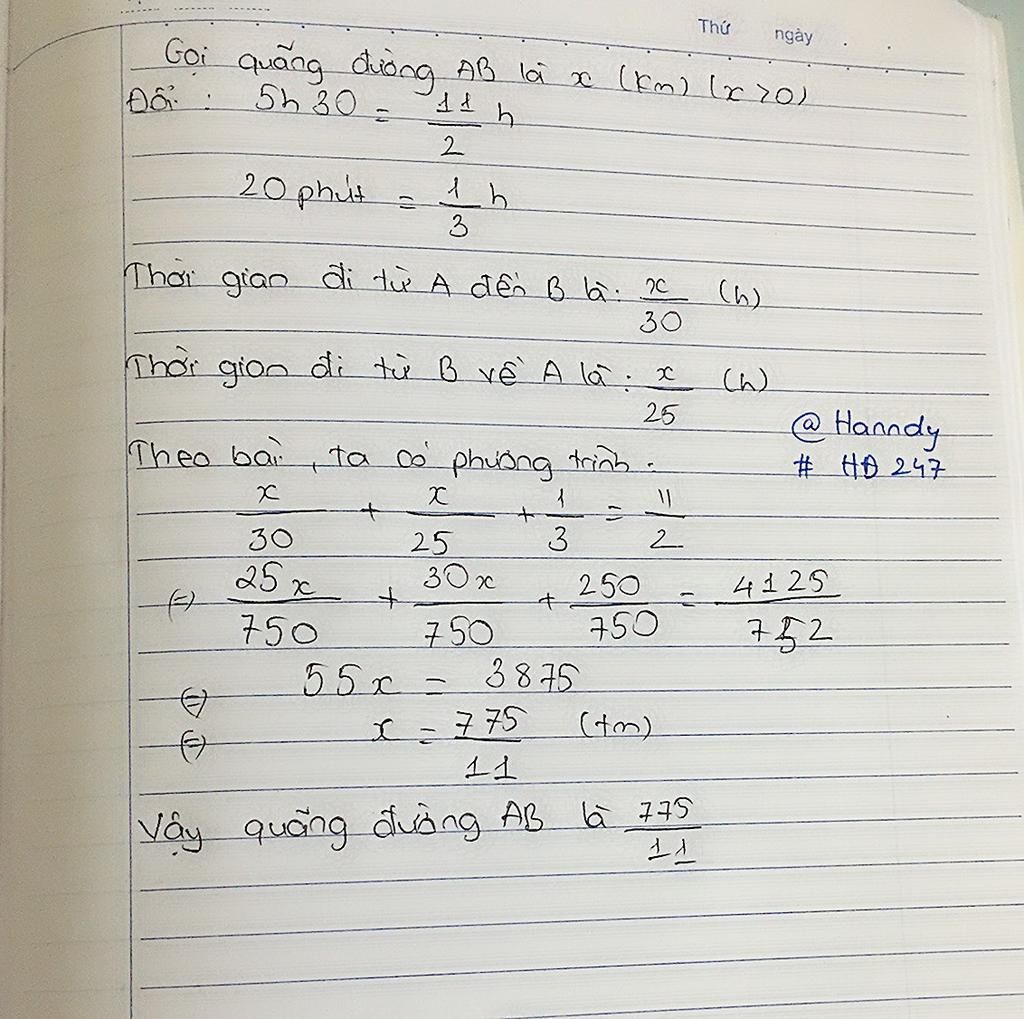 Thứ ngày . .
Gọi quãng đường AB là x (km) (x>0)
Đổi: 5h30 = 11/2 h
20 phút = 1/3 h
Thời gian đi từ A đến B là: x/30 (h)
Thời gian đi từ B về A là: x/25 (h)
@Hanndy
# HĐ 247
Theo bài, ta có phương trình:
x/30 + x/25 + 1/3 = 11/2
(=) 25x/750 + 30x/750 + 250/750 = 4125/752
(=) 55x = 3875
(=) x = 775/11 (tm)
Vậy quãng đường AB là 775/11